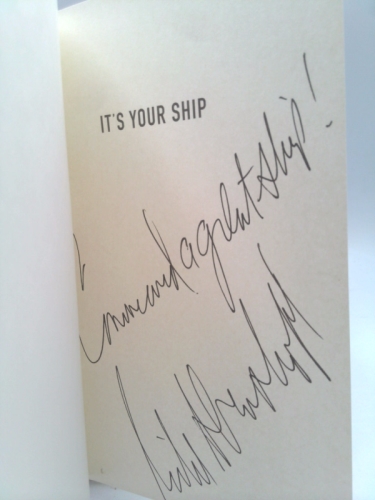 IT'S YOUR SHIP
Command a great ship!